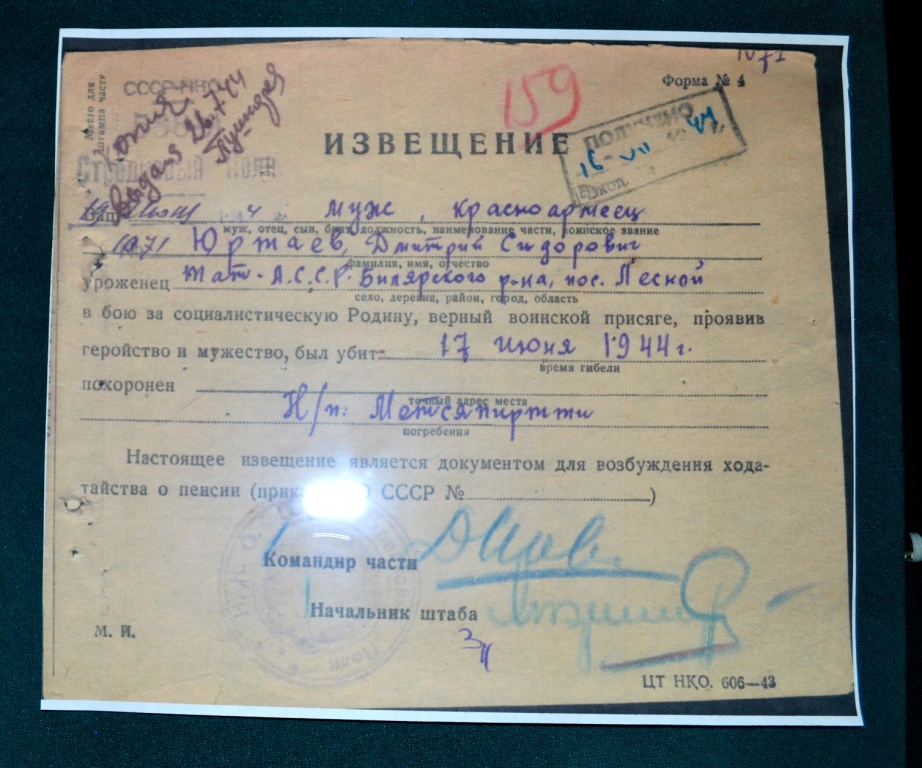 Место для
штампа части
СССР-НКО
Стрелковый Полк
Копия
выдал 26.7.44
159
Форма № 4
ПОЛУЧЕНО
16 VII 44
ИЗВЕЩЕНИЕ
Ваш муж, красноармеец
муж, отец, сын, брат, должность, наименование части, воинское звание
Юртаев, Дмитрий Сидорович
фамилия, имя, отчество
уроженец Тат-А.С.С.Р. Билярского р-на, пос. Лесной
село, деревня, район, город, область
в бою за социалистическую Родину, верный воинской присяге, проявив
геройство и мужество, был убит 17 июня 1944 г.
время гибели
похоронен
точный адрес места
Н/п. Метсяпиртти
погребения
Настоящее извещение является документом для возбуждения хода-
тайства о пенсии (прика О СССР № )
Командир части
Начальник штаба
М. П.
ЦТ НКО. 606—43